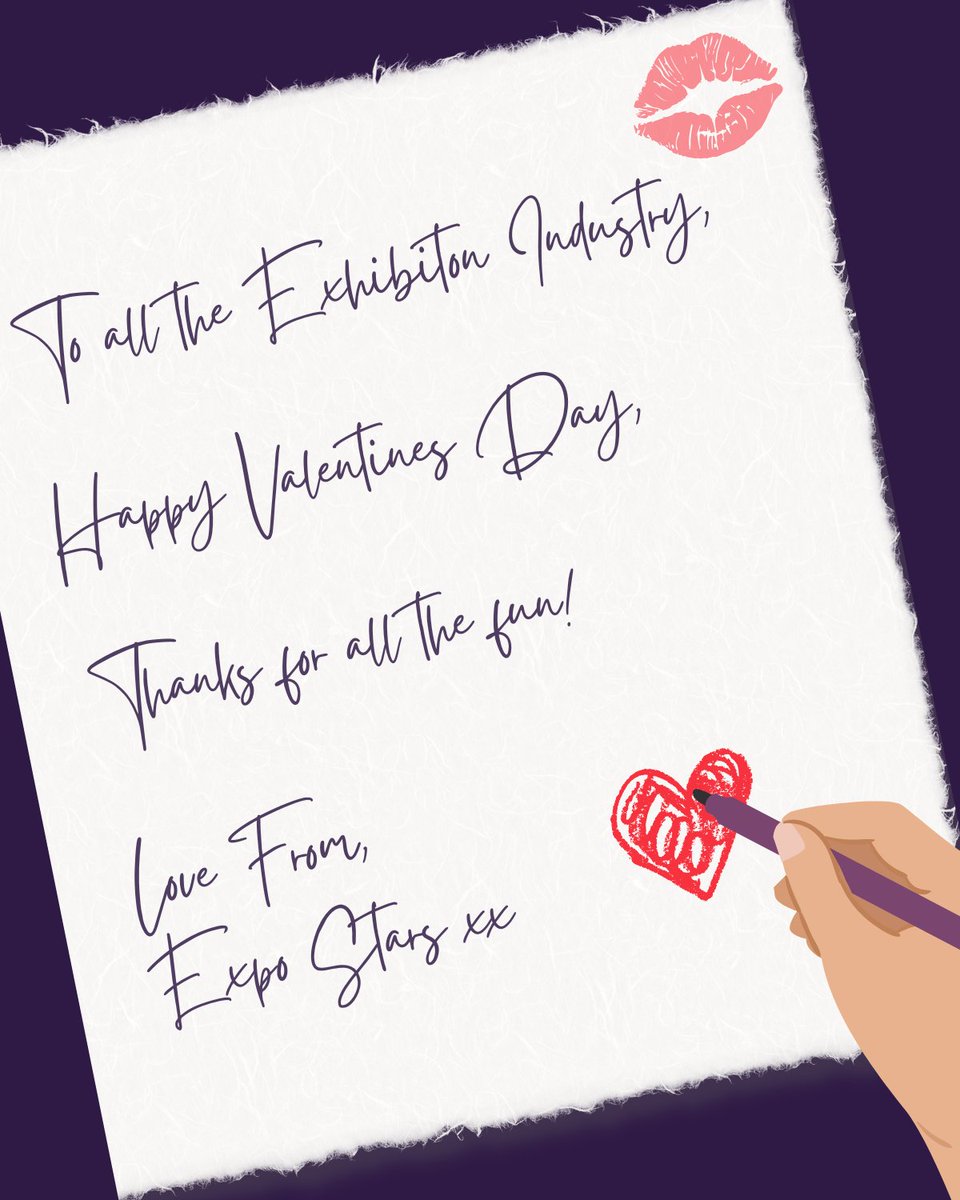 To all the Exhibiton Industry,
Happy Valentines Day,
Thanks for all the fun!
Love From,
Expo Stars xx